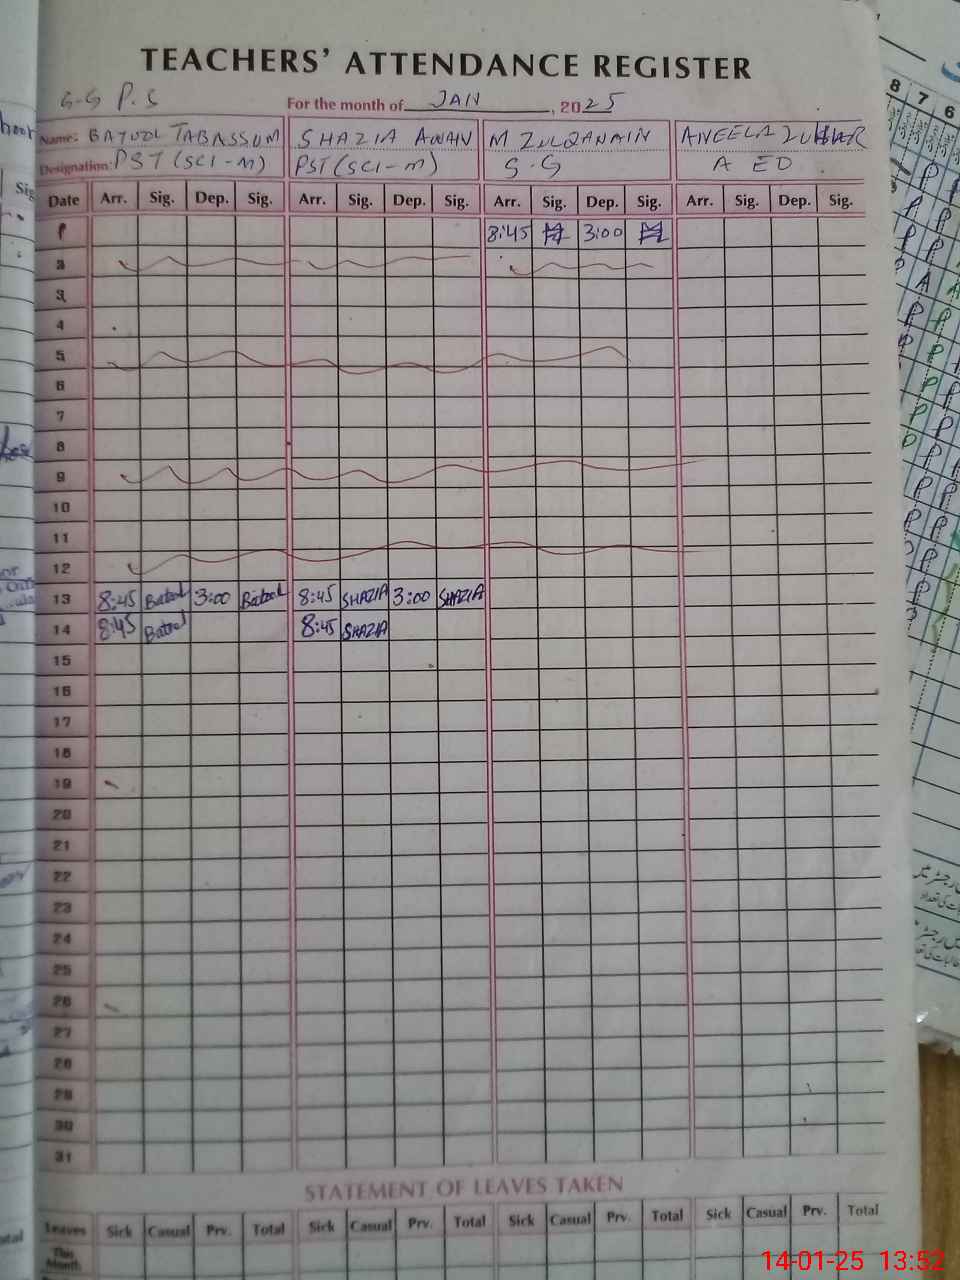 TEACHERS' ATTENDANCE REGISTER
G.G P.S For the month of JAN, 2025
Name: BATOOL TABASSUM SHAZIA AWAN M ZULQANAIN ANEELA
Designation: PST (SCI-M) PST (SCI-M) S.G A EO
Date Arr. Sig. Dep. Sig. Arr. Sig. Dep. Sig. Arr. Sig. Dep. Sig. Arr. Sig. Dep. Sig.
1 8:45 3:00
2
3
4
5
6
7
8
9
10
11
12
13 8:45 Batool 3:00 Batool 8:45 SHAZIA 3:00 SHAZIA
14 8:45 Batool 8:45 SHAZIA
15
16
17
18
19
20
21
22
23
24
25
26
27
28
29
30
31
STATEMENT OF LEAVES TAKEN
Leaves Sick Casual Prv. Total Sick Casual Prv. Total Sick Casual Prv. Total Sick Casual Prv. Total
This
Month
14-01-25 13:52
8 7 6